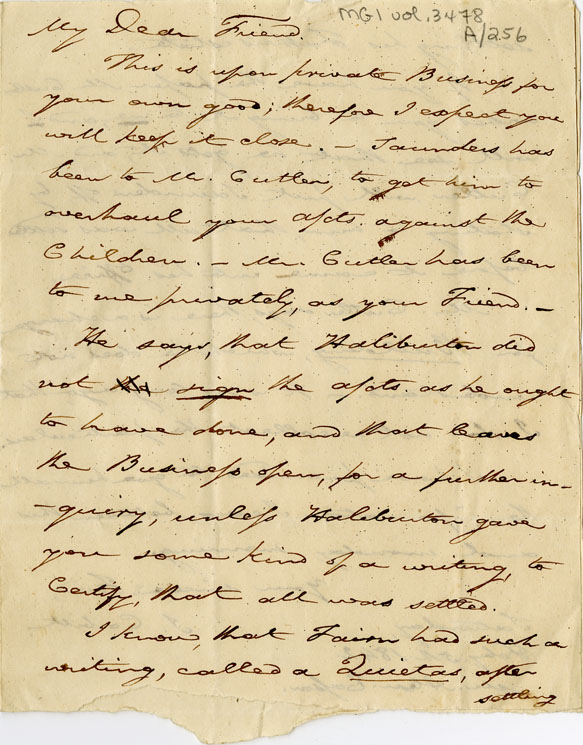 MG1 vol. 3478
A/256
My Dear Friend
This is upon private Business for
your own good; therefore I expect you
will keep it close. — Saunders has
been to Mr. Cutler, to get him to
overhaul your Accts. against the
Children. — Mr. Cutler has been
to me privately, as your Friend. —
He says, that Haliburton did
not sign the Accts as he ought
to have done, and that leaves
the Business open, for a further in-
-quiry, unless Haliburton gave
you some kind of a writing, to
Certify, that all was settled.
I know, that Fairn had such a
writing, called a Quietas, after
settling